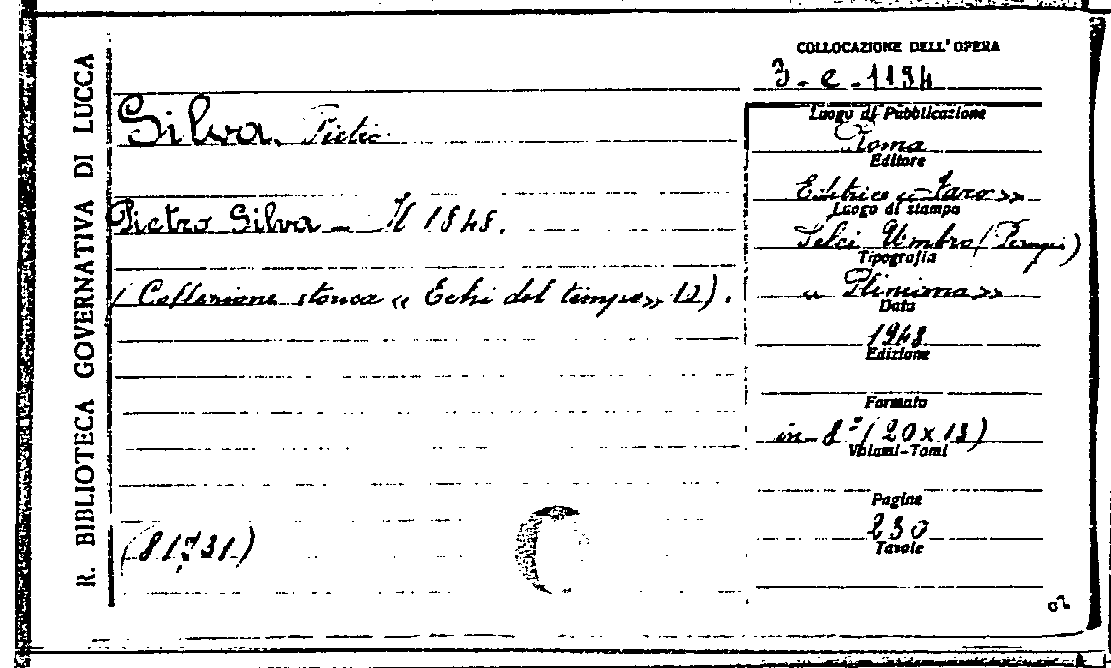 R. BIBLIOTECA GOVERNATIVA DI LUCCA
COLLOCAZIONE DELL'OPERA
3-e-1194
Silva, Pietro
Pietro Silva - Il 1848.
(Collezione storica « Echi del tempo» 12).
(81731)
Luogo di Pubblicazione
Roma
Editore
Editrice « Faro»
Luogo di stampa
Selci Umbro (Perugia)
Tipografia
« Pliniana»
Data
1948
Edizione
Formato
in-8° (20x13)
Volumi-Tomi
Pagine
230
Tavole